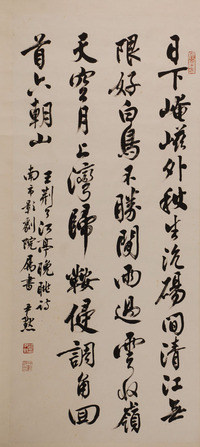 日下崦嵫外秋生沆碭間清江無
限好白鳥不勝閒雨過雲收嶺
天空月上灣歸鞍侵調角回
首六朝山
王荊公江亭晚眺詩
南市影劇院屬書 尹默